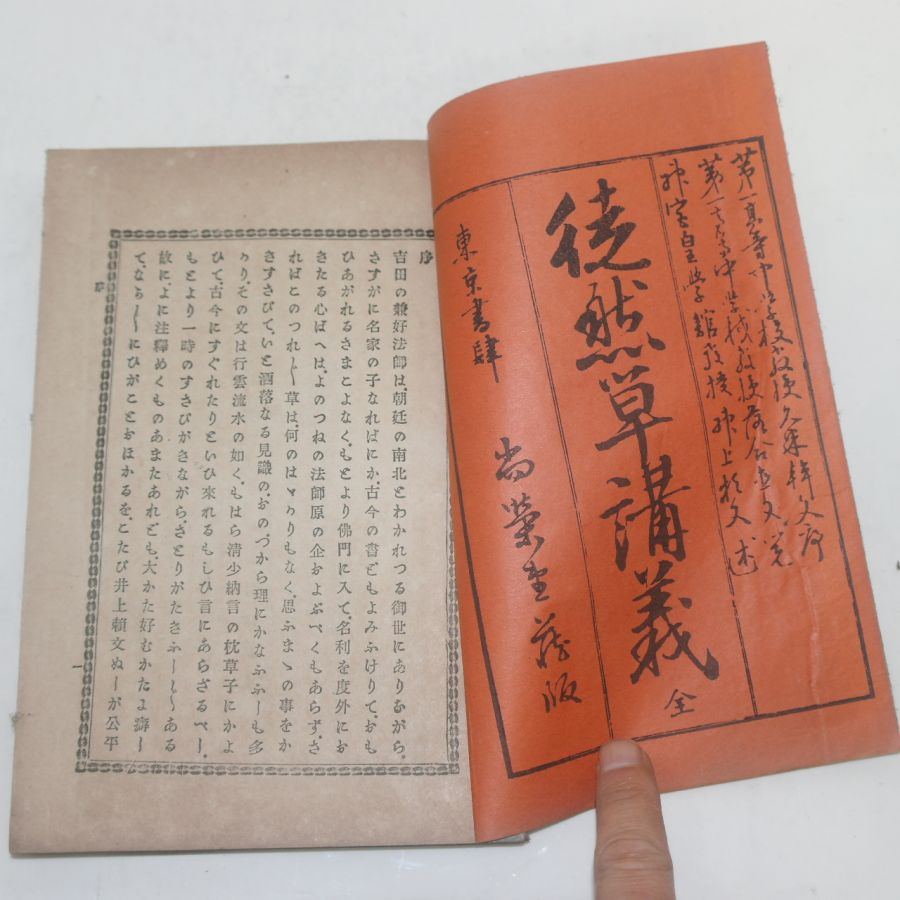 第一高等中学校教授久米幹文序
第一高等中学校教授落合直文閲
神宮皇学館教授井上頼文述
徒然草講義 全
東京書肆 尚榮堂藏版
序
吉田の兼好法師は、朝廷の南北とわかれつる御世にありながら、
さすがに名家の子なればにか、古今の書どもよみふけりて、おも
ひあがれるさまこよなく、もとより佛門に入て、名利を度外にお
きたる心ばへは、よのつねの法師原の企およぶべくもあらず、さ
ればこのつれ〴〵草は、何のはゞかりもなく、思ふまゝの事をか
きすさびて、いと洒落なる見識の、おのづから理にかなふふしも多
かり、その文は行雲流水の如く、もはら清少納言の枕草子にかよ
ひて、古今にすぐれたりといひ來れるもしひ言にあらざるべし、
もとより一時のすさびがきながら、さとりがたきふし〴〵ある
故に、よに注釋めくものあまたあれども、大かた好むかたよ
て、なか〳〵にひがことおほかるを、こたび井上頼文ぬしが公平
序
一